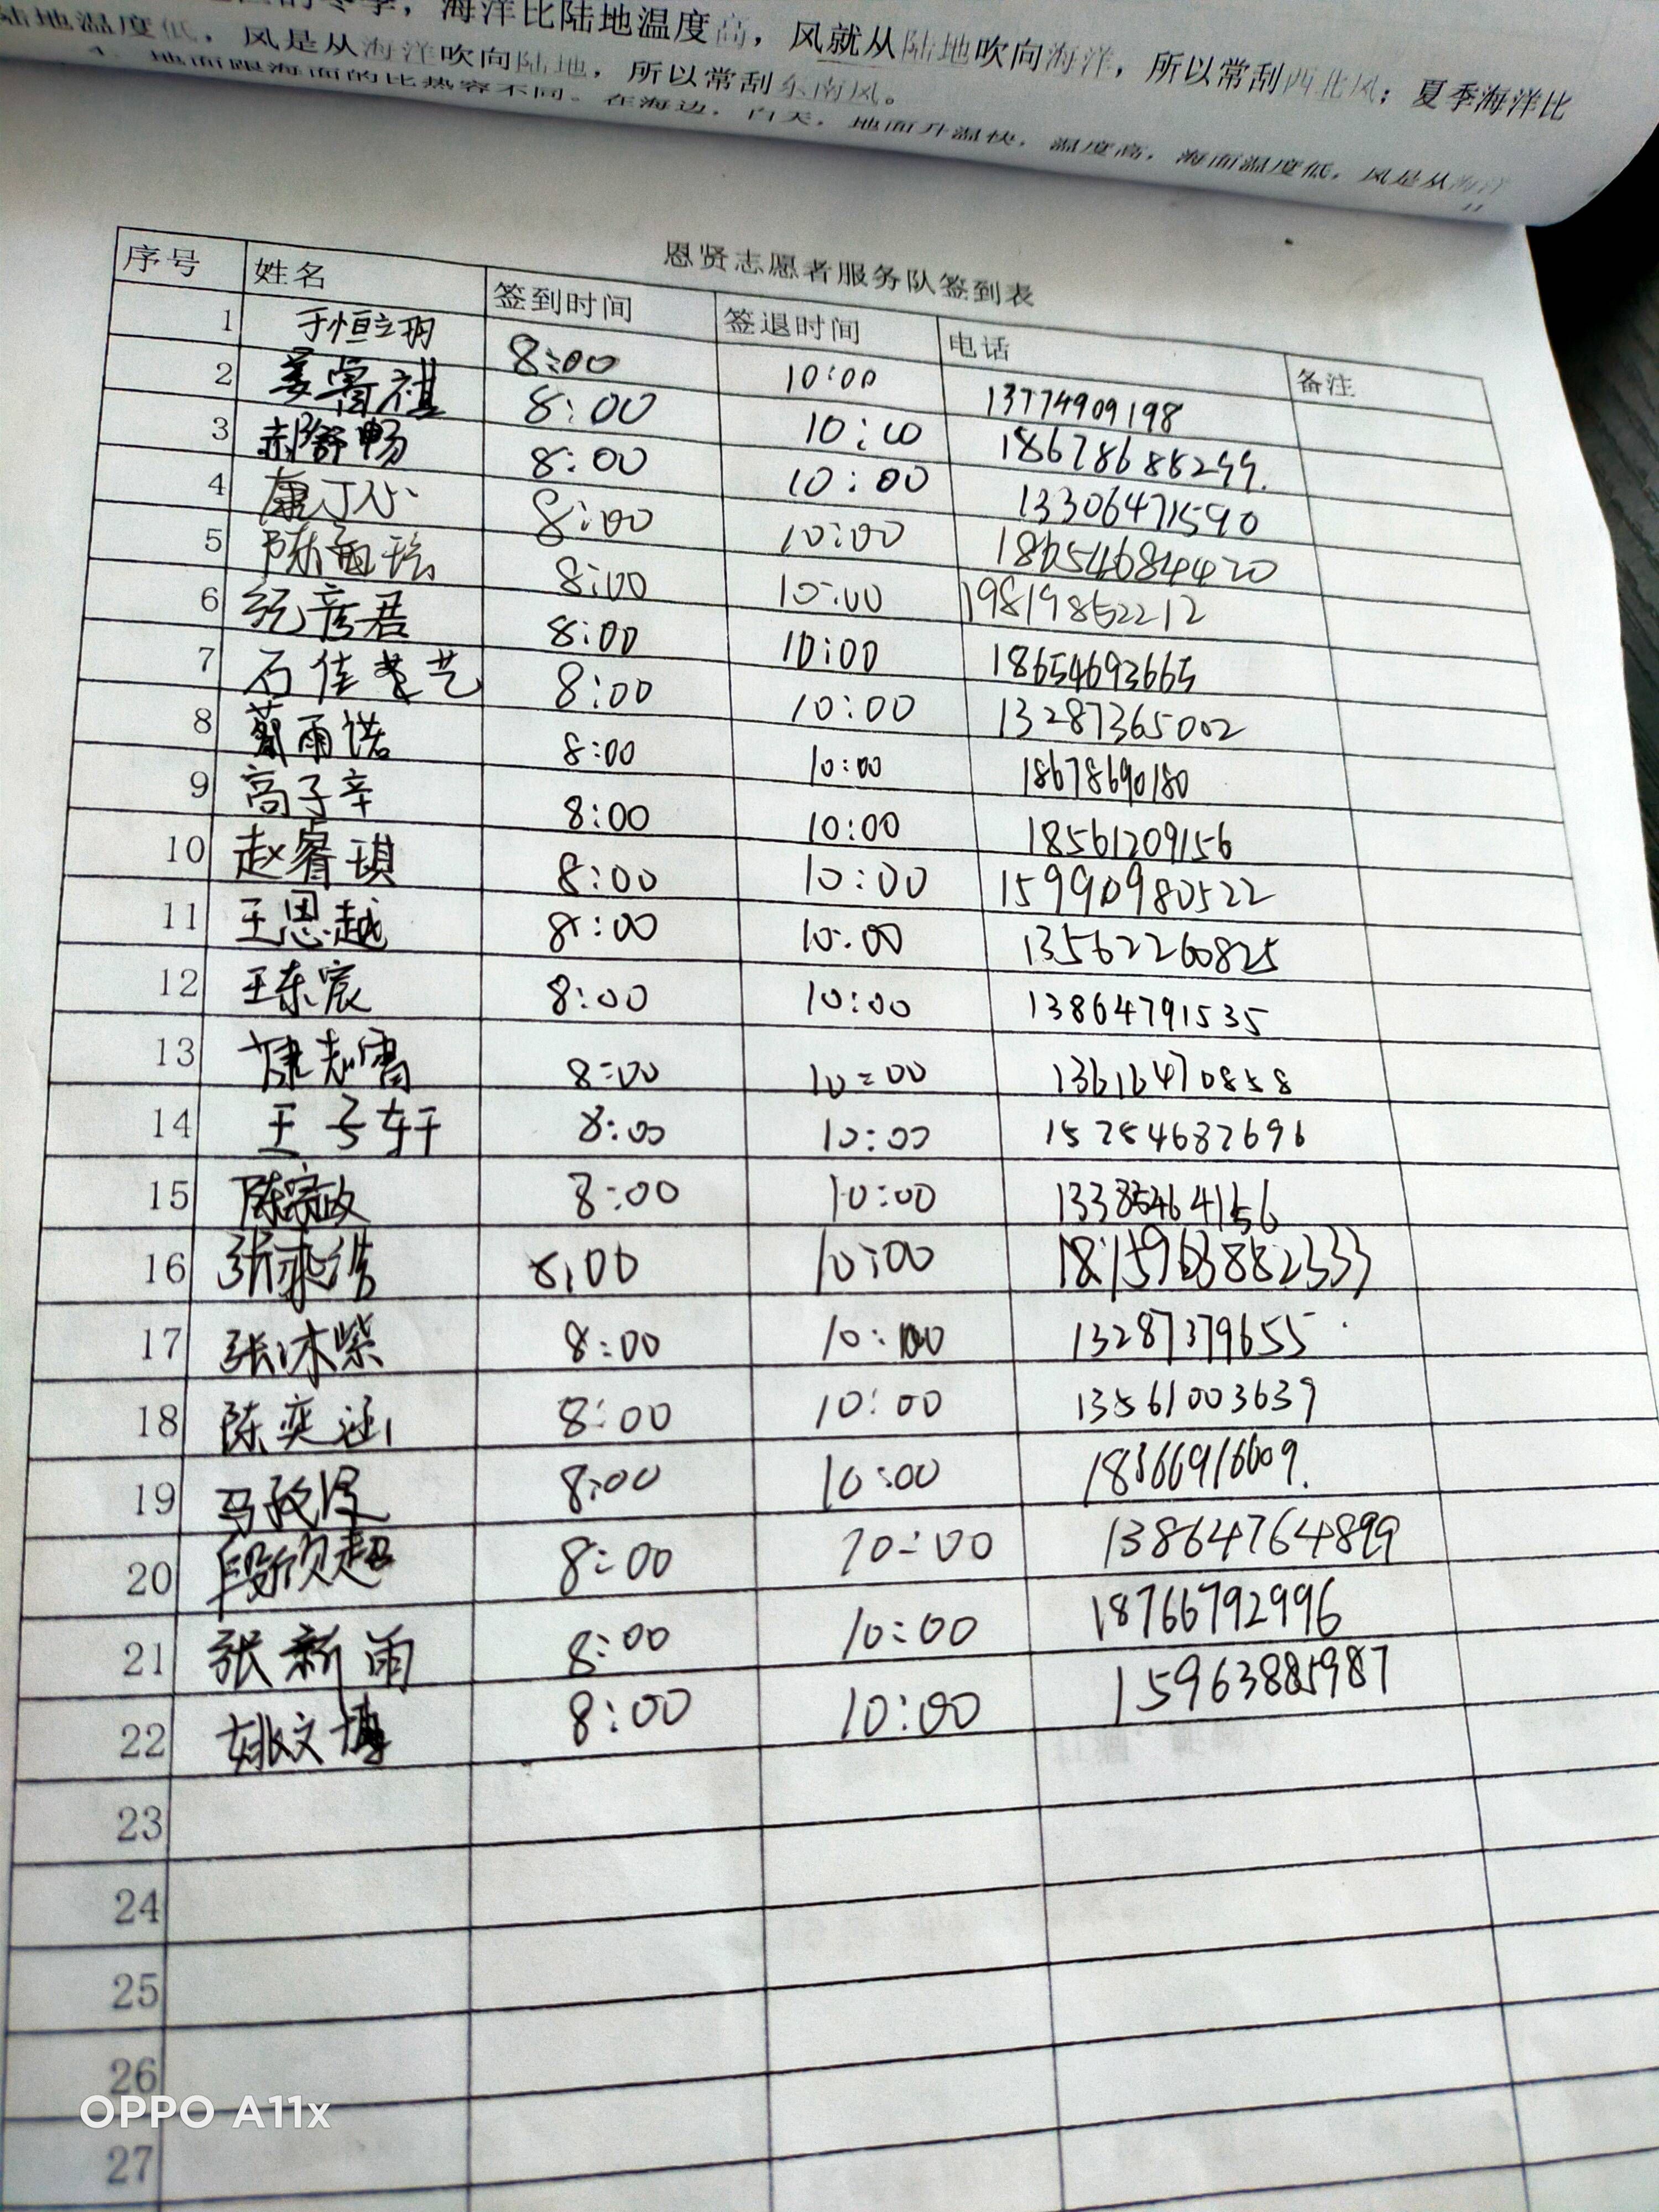 冬季，海洋比陆地温度高，风就从陆地吹向海洋，所以常刮西北风；夏季海洋比
陆地温度低，风是从海洋吹向陆地，所以常刮东南风。
地面跟海面的比热容不同。在海边，白天，地面升温快，温度高，海面温度低，风是从海洋
11
恩贤志愿者服务队签到表
序号 姓名 签到时间 签退时间 电话 备注
1 于恒立玥 8:00 10:00 13774909198
2 8:00 10:00 18678688299.
3 郝舒畅 8:00 10:00 13306471590
4 8:00 10:00 18654684420
5 8:00 10:00 19819852212
6 纪彦君 8:00 10:00 18654693665
7 石佳艺 8:00 10:00 13287365002
8 雨诺 8:00 10:00 18678690180
9 高子辛 8:00 10:00 18561209156
10 赵睿琪 8:00 10:00 15990980522
11 王思越 8:00 10:00 13562260825
12 王东宸 8:00 10:00 13864791535
13 8:00 10:00 13616470858
14 王子轩 8:00 10:00 15254682696
15 8:00 10:00
16 8:00 10:00
17 张沐紫 8:00 10:00 13287379655
18 陈奕涵 8:00 10:00 13561003639
19 8:00 10:00 18366916609.
20 段欣超 8:00 10:00 13864764899
21 张新雨 8:00 10:00 18766792996
22 姚文博 8:00 10:00 15963885987
23
24
25
26
27
OPPO A11x